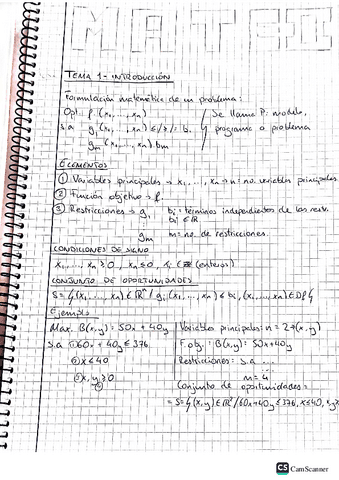 MATES II
TEMA 1 - INTRODUCCIÓN
Formulación matemática de un problema:
Opt. f (x₁, ..., xₙ)
s.a g₁ (x₁, ..., xₙ) ≤/≥/= b₁
gₘ (x₁, ..., xₙ) bₘ
Se llama P: modelo,
programa o problema
ELEMENTOS
① Variables principales → x₁, ..., xₙ → n: no. variables principales.
② Función objetivo → f.
③ Restricciones → g₁ bᵢ = términos independientes de las restr.
bᵢ ∈ ℝ
gₘ m = no. de restricciones.
CONDICIONES DE SIGNO
x₁, ..., xₙ ≥ 0, xₙ ≤ 0, (enteros)
CONJUNTO DE OPORTUNIDADES
S = {(x₁, ..., xₙ) ∈ ℝⁿ / gᵢ (x₁, ..., xₙ) ≤ bᵢ, (x₁, ..., xₙ) ∈ Df}
Ejemplo
Max. B(x,y) = 50x + 40y
s.a ① 60x + 40y ≤ 376
② x ≤ 40
③ x, y ≥ 0
Variables principales: n = 2 → (x, y)
F. obj.: B(x,y) = 50x + 40y
Restricciones: s.a ...
m = 4
Conjunto de oportunidades =
= S = {(x,y) ∈ ℝ² / 60x + 40y ≤ 376, x ≤ 40, x, y ≥
CS CamScanner